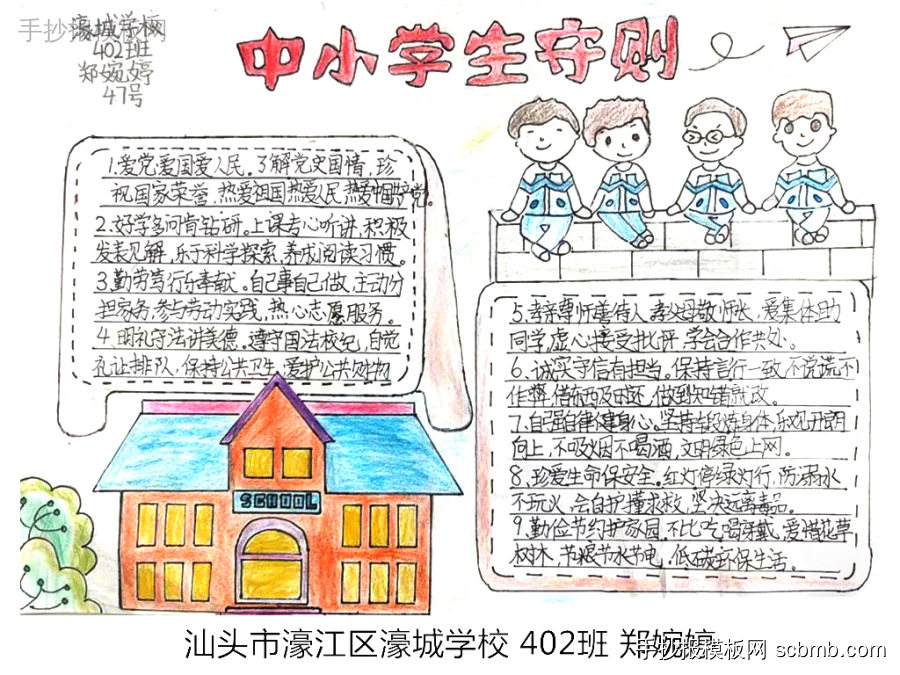 手抄报模板网
濠城学校
402班
郑婉婷
47号
中小学生守则
1.爱党爱国爱人民。了解党史国情,珍
视国家荣誉,热爱祖国,热爱人民,热爱中国共产党。
2.好学多问肯钻研。上课专心听讲,积极
发表见解,乐于科学探索,养成阅读习惯。
3.勤劳笃行乐奉献。自己事自己做,主动分
担家务,参与劳动实践,热心志愿服务。
4.明礼守法讲美德。遵守国法校纪,自觉
礼让排队,保持公共卫生,爱护公共财物
5.孝亲尊师善待人,孝父母敬师长,爱集体助
同学,虚心接受批评,学会合作共处。
6.诚实守信有担当。保持言行一致,不说谎不
作弊,借东西及时还,做到知错就改。
7.自强自律健身心。坚持锻炼身体,乐观开朗
向上,不吸烟不喝酒,文明绿色上网。
8.珍爱生命保安全。红灯停绿灯行,防溺水
不玩火,会自护懂求救,坚决远离毒品。
9.勤俭节约护家园。不比吃喝穿戴,爱惜花草
树木,节粮节水节电,低碳环保生活。
SCHOOL
汕头市濠江区濠城学校 402班 郑婉婷
手抄报模板网 scbmb.com